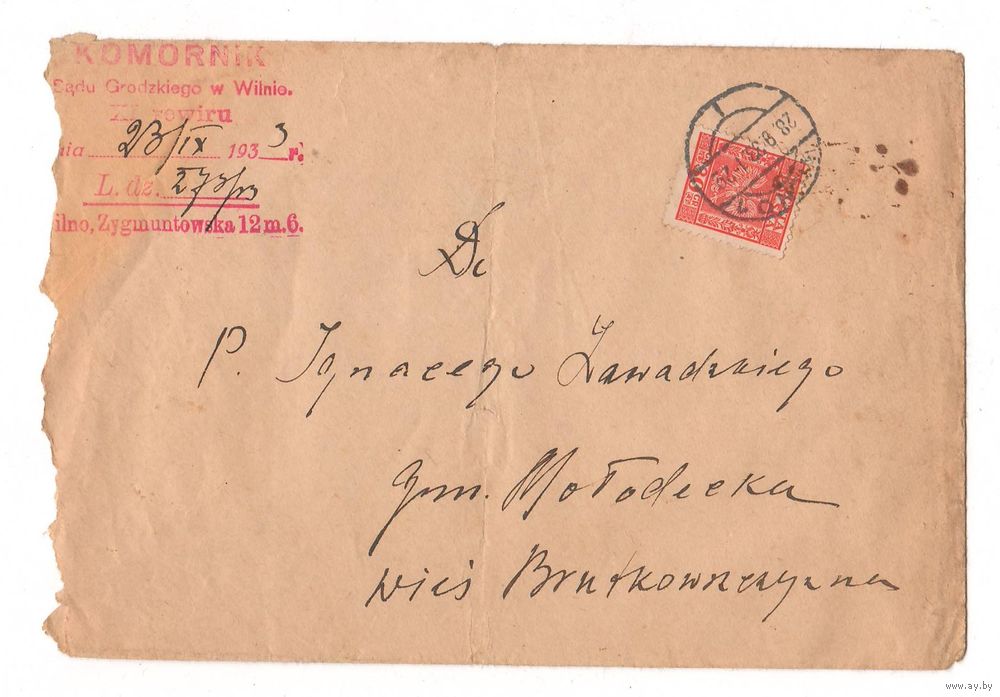 KOMORNIK
Sądu Grodzkiego w Wilnie.
XI rewiru
nia 23/IX 1933 r.
L. dz. 273/33
ilno, Zygmuntowska 12 m. 6.
28.8.
Do
P. Ignacego Zawadzkiego
gm. Mołodecka
wieś Brutkowszczyzna
www.ay.by